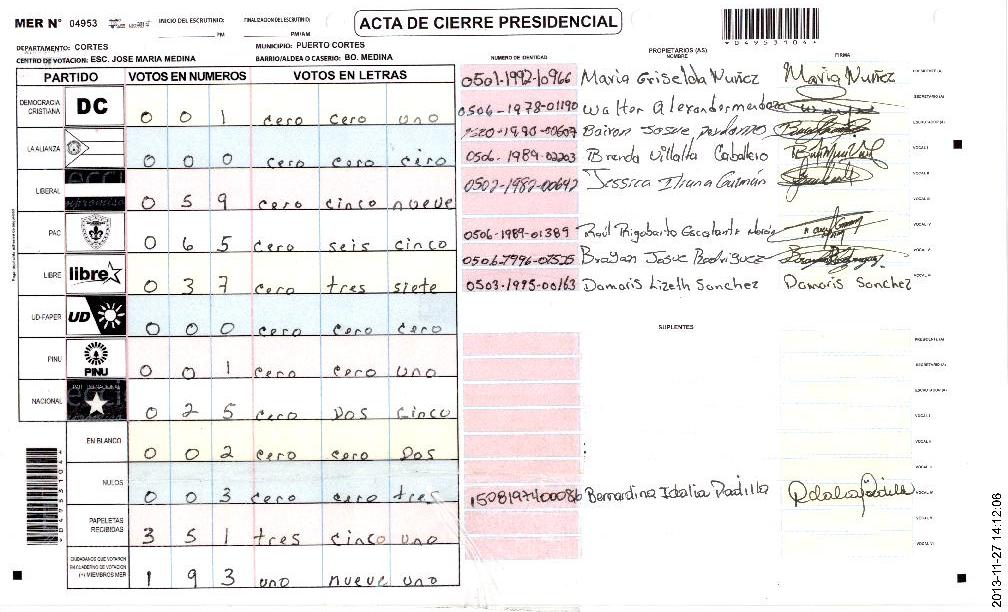 MER N° 04953 INICIO DEL ESCRUTINIO: PM FINALIZACION DEL ESCRUTINIO: PM/AM
ACTA DE CIERRE PRESIDENCIAL
*04953104*
DEPARTAMENTO: CORTES MUNICIPIO: PUERTO CORTES
CENTRO DE VOTACION: ESC. JOSE MARIA MEDINA BARRIO/ALDEA O CASERIO: BO. MEDINA
PARTIDO VOTOS EN NUMEROS VOTOS EN LETRAS
DEMOCRACIA CRISTIANA DC 0 0 1 cero cero uno
LA ALIANZA 0 0 0 cero cero cero
LIBERAL 0 5 9 cero cinco nueve
PAC 0 6 5 cero seis cinco
LIBRE libre 0 3 7 cero tres siete
UD-FAPER UD 0 0 0 cero cero cero
PINU PINU 0 0 1 cero cero uno
NACIONAL 0 2 5 cero Dos cinco
EN BLANCO 0 0 2 cero cero Dos
NULOS 0 0 3 cero cero tres
PAPELETAS RECIBIDAS 3 5 1 tres cinco uno
CIUDADANOS QUE VOTARON EN CUADERNO DE VOTACION (+) MIEMBROS MER 1 9 3 uno nueve uno
PROPIETARIOS (AS)
NUMERO DE IDENTIDAD NOMBRE FIRMA
0501-1992-10966 Maria Griselda Nuñez Maria Nuñez PRESIDENTE (A)
0506-1978-01190 Walter Alexander mendoza SECRETARIO (A)
Bairon Josue ESCRUTADOR (A)
0506-1989-02203 Brenda Villalta Caballero VOCAL I
0502-1982-00642 Jessica Iliana Guzmán VOCAL II
VOCAL III
0506-1989-01389 Raúl Rigoberto Escalante VOCAL IV
Brayan Josue Rodriguez VOCAL V
0503-1995-00163 Damaris Lizeth Sanchez Damaris Sanchez VOCAL VI
SUPLENTES
PRESIDENTE (A)
SECRETARIO (A)
ESCRUTADOR (A)
VOCAL I
VOCAL II
VOCAL III
1508197400086 Bernardina Idalia Padilla VOCAL IV
VOCAL V
VOCAL VI
*04953104*
2013-11-27 14:12:06